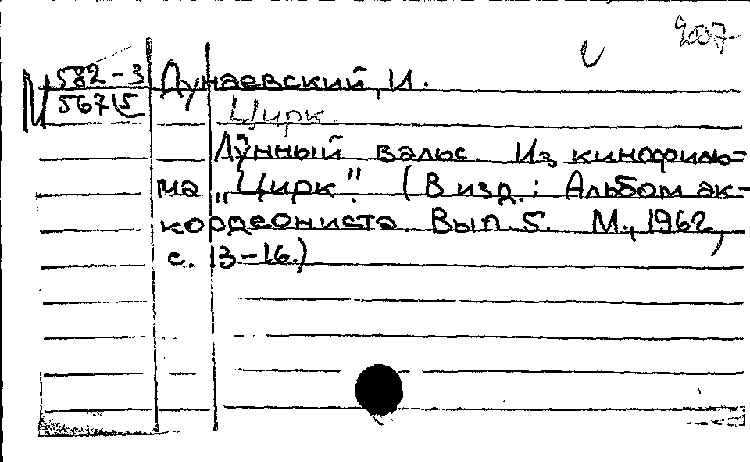 2007
582-3 Дунаевский, И.
5671/5
Цирк.
Лунный вальс. Из кинофиль=
ма „Цирк". (В изд.: Альбом ак-
кордеониста. Вып. 5. М., 1962,
с. 13-16.)